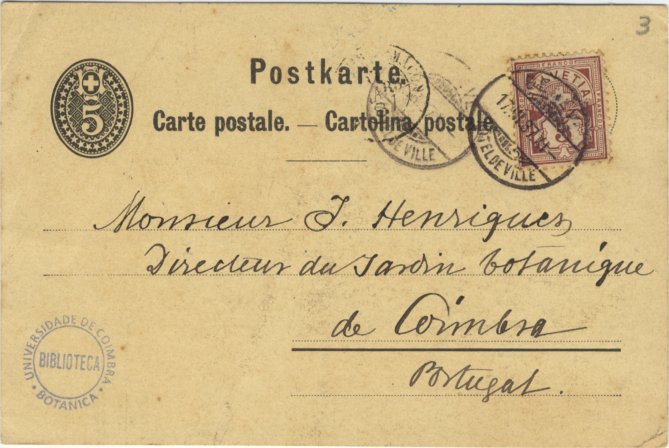 3
Postkarte.
Carte postale. — Cartolina postale.
5
HELVETIA
FRANCO
5
HÔTEL DE VILLE
DE VILLE
Monsieur J. Henriques
Directeur du Jardin botanique
de Coimbra
Portugal.
UNIVERSIDADE DE COIMBRA
BIBLIOTECA
BOTANICA